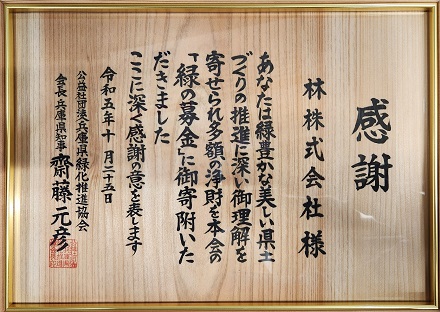 感謝
林株式会社様
あなたは緑豊かな美しい県土
づくりの推進に深い御理解を
寄せられ多額の浄財を本会の
「緑の募金」に御寄附いた
だきました
ここに深く感謝の意を表します
令和五年十月二十五日
公益社団法人兵庫県緑化推進協会
会長 兵庫県知事 齋藤元彦